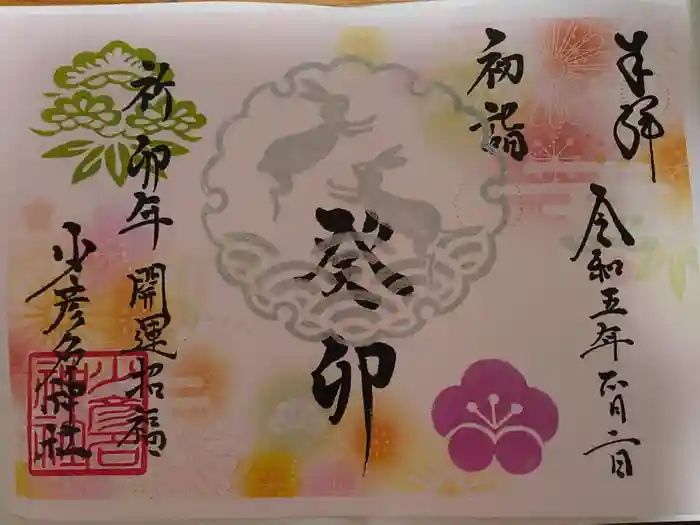 奉拝
令和五年 正月二日
初詣
癸卯
祈 卯年 開運招福
少彦名神社
少彦名
神社